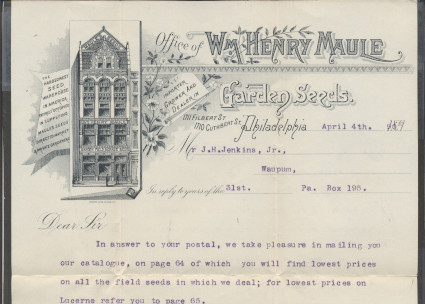 Office of
WM HENRY MAULE
IMPORTER
GROWER AND
DEALER IN
Garden Seeds.
THE
HANDSOMEST
SEED
WAREHOUSE
IN AMERICA,
1711 FILBERT ST.
1710 CUTHBERT ST. Philadelphia April 4th.
Mr J.H.Jenkins, Jr.,
Waupum,
In reply to yours of the 31st. Pa. Box 195.
Dear Sir
In answer to your postal, we take pleasure in mailing you
our catalogue, on page 64 of which you will find lowest prices
on all the field seeds in which we deal; for lowest prices on
Lucerne refer you to page 65.